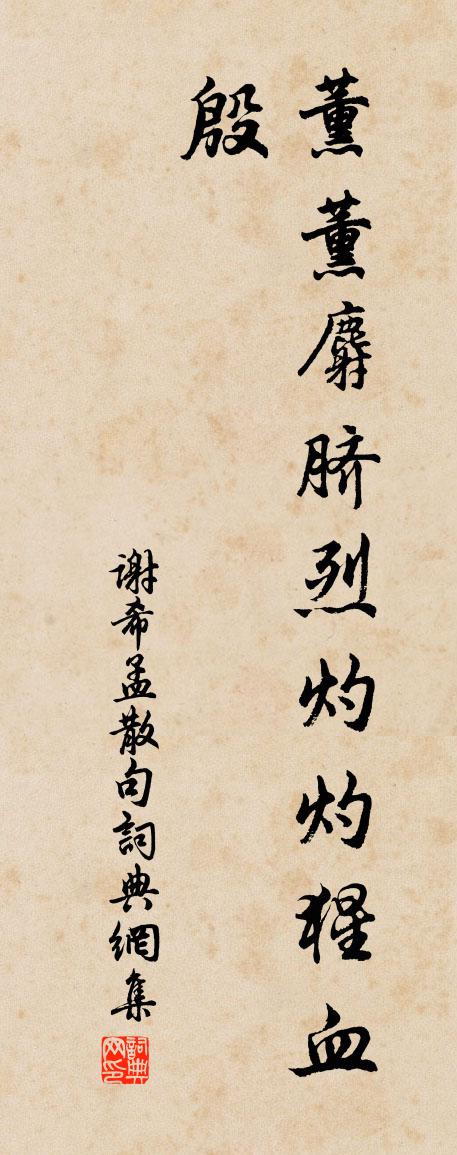 薰薰麝脐烈灼灼猩血
殷
谢希孟散句詞典網集
詞典网印